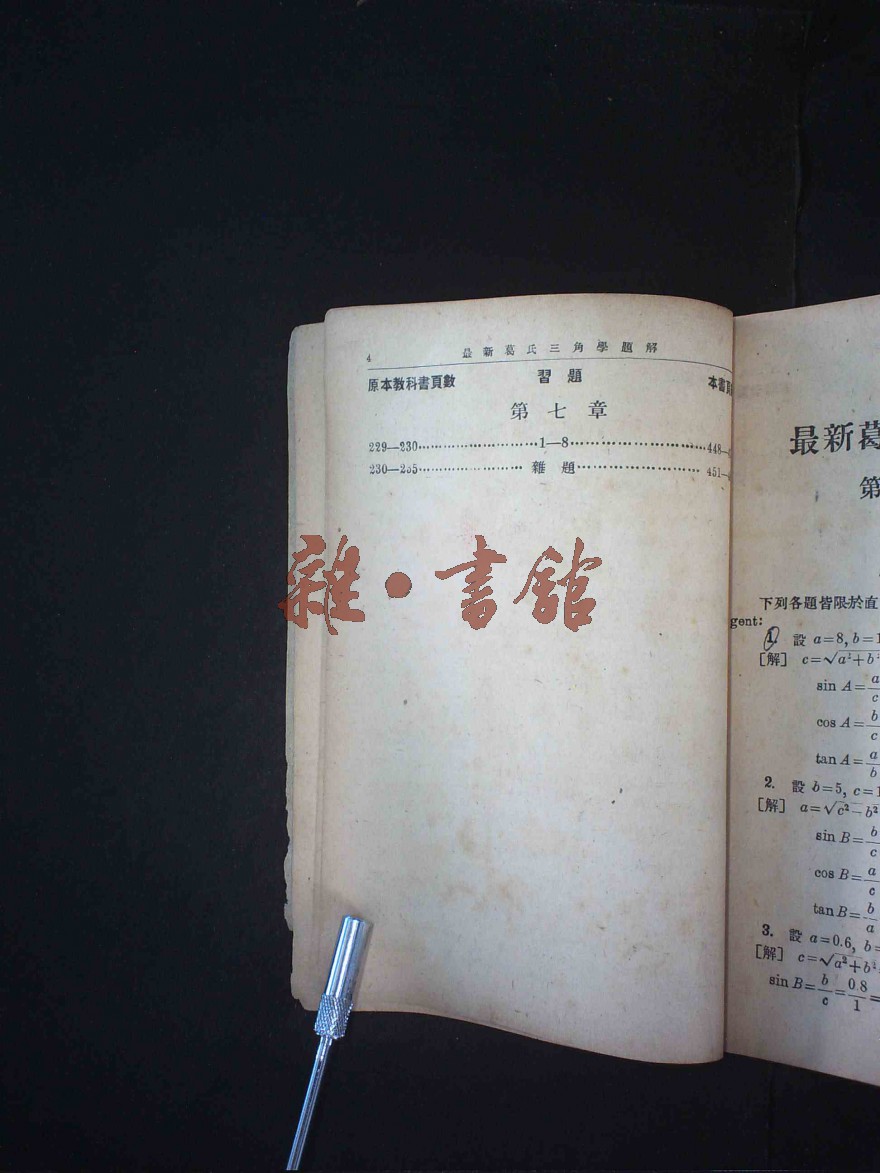 4 最新葛氏三角學題解
原本教科書頁數 習題 本書頁
第七章
229—230……………………1—8……………………448—
230—235………………… 雜題…………………… 451—
雜·書館
最新葛
第
下列各題皆限於直
gent:
1. 設 a=8, b=1
[解] c=√a²+b²
sin A=a/c
cos A=b/c
tan A=a/b
2. 設 b=5, c=1
[解] a=√c²−b²
sin B=b/c
cos B=a/c
tan B=b/a
3. 設 a=0.6, b=
[解] c=√a²+b²
sin B=b/c=0.8/1=